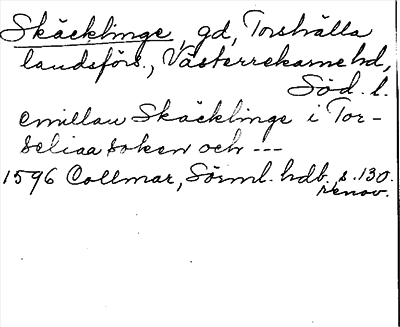 Skäcklinge, gd, Torshälla
landsförs., Västerrekarne hd,
Söd. l.
emillan Skäcklinge i Tor-
seliaa soken och ---
1596 Collmar, Sörml. hdb. s. 130.
renov.